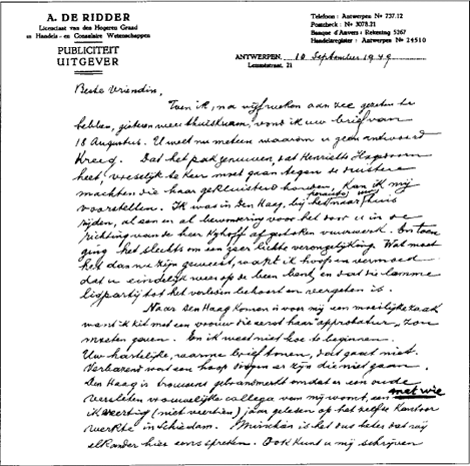 A. DE RIDDER
Licenciaat van den Hogeren Graad
in Handels- en Consulaire Wetenschappen
PUBLICITEIT
UITGEVER
Telefoon: Antwerpen Nº 737.12
Postcheck: Nº 3078.21
Banque d'Anvers: Rekening 5267
Handelsregister: Antwerpen Nº 24510
ANTWERPEN, 10 September 1949
Lemméstraat, 21
Beste Vriendin,
Toen ik, na vijf weken aan zee gezeten te
hebben, gisteren weer thuiskwam, vond ik uw brief van
18 Augustus. U weet nu meteen waarom u geen antwoord
kreeg. Dat het pak genuwen, dat Henriette
heet, vreselijk te keer moet gaan tegen de duistere
machten die haar gekluisterd houden, kan ik mij
voorstellen. Ik was in den Haag, bij het naar huis
rijden, al een en al bewondering voor het door u in de
richting van de heer Nyhoff afgestoken vuurwerk. En toen
ging het slechts om een zeer lichte verongelijking. Wat moet
het dan nu zijn geweest, want ik hoop en vermoed
dat u eindelijk weer op de been bent, en dat die lamme
lidpartij tot het verleden behoort en vergeten is.
Naar Den Haag komen is voor mij een moeilijke zaak
want ik zit met een vrouw die eerst haar "approbatur" zou
moeten geven. En ik weet niet hoe te beginnen.
Uw hartelijke, warme brief tonen, dat gaat niet.
Verbazend wat een hoop dingen er zijn die niet gaan.
Den Haag is trouwens gebrandmerkt omdat er een oude
versleten vrouwelijke collega van mij woont, een met wie
ik veertig (niet veertien) jaar geleden op het zelfde kantoor
werkte in Schiedam. Misschien is het dus beter dat wij
elkander hier eens spreken. Ook kunt u mij schrijven